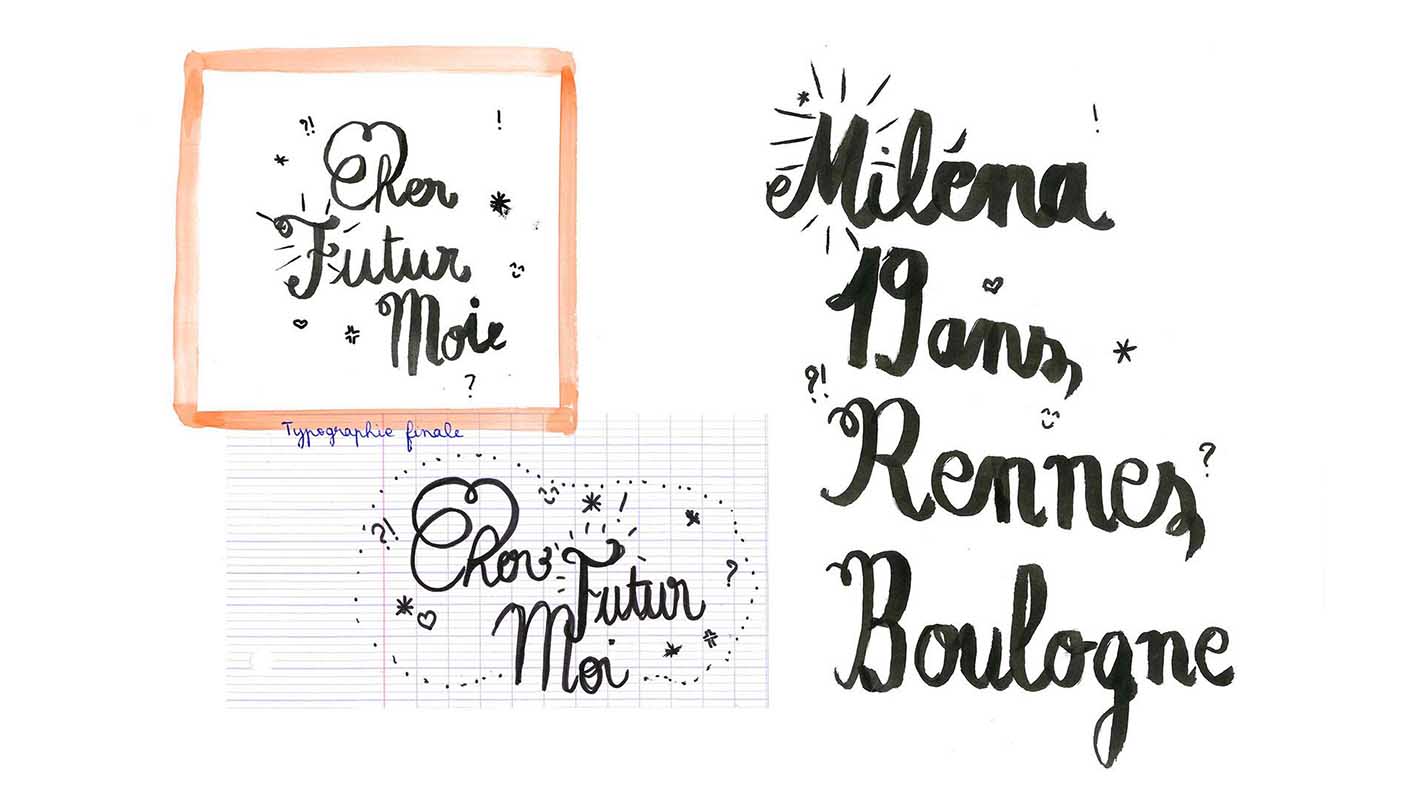 ?!
!
Cher
Futur
Moie
?
Typographie finale
?!
!
Cher
Futur
?
Moi
!
Miléna
19 ans,
?!
Rennes,
?
Boulogne